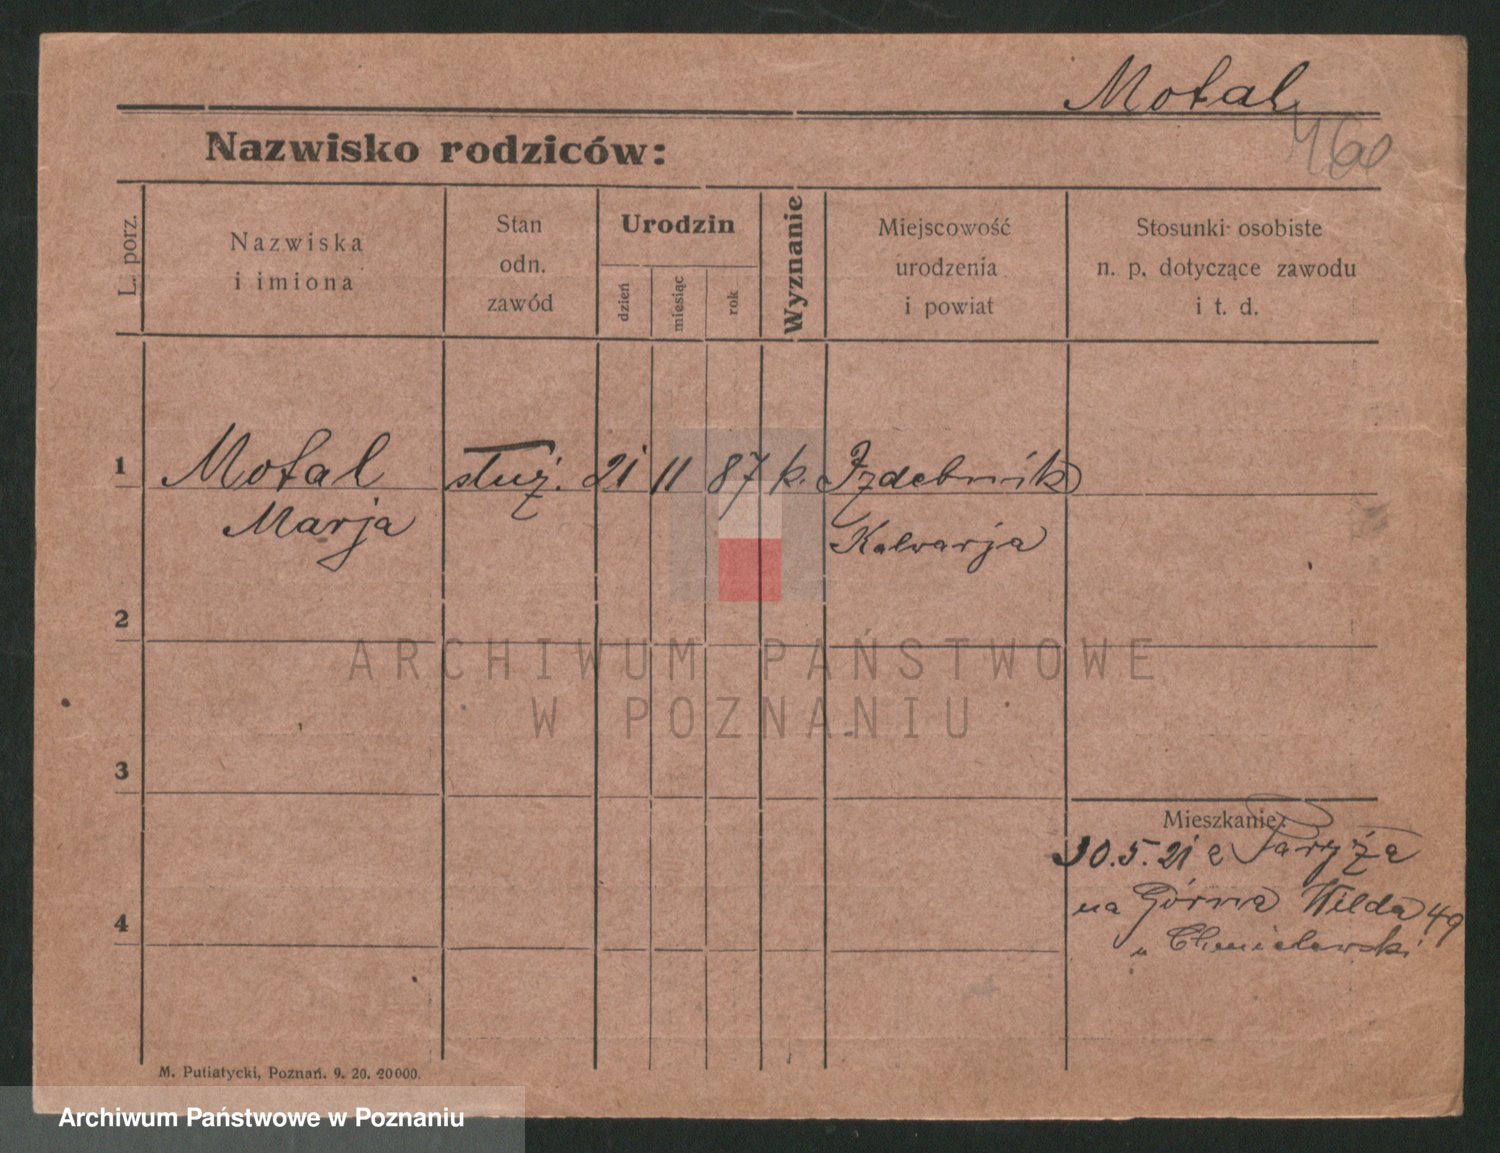 Motal
Nazwisko rodziców:
L. porz.
Nazwiska
i imiona
Stan
odn.
zawód
Urodzin
dzień
miesiąc
rok
Wyznanie
Miejscowość
urodzenia
i powiat
Stosunki osobiste
n. p. dotyczące zawodu
i t. d.
1 Motal służ. 21 11 87 k. Izdebnik
Marja Kalwarja
2
ARCHIWUM PAŃSTWOWE
W POZNANIU
3
Mieszkanie:
30.5.21 z Paryża
na Górna Wilda 49
u Chmielewski
4
M. Putiatycki, Poznań. 9. 20. 20000.
Archiwum Państwowe w Poznaniu